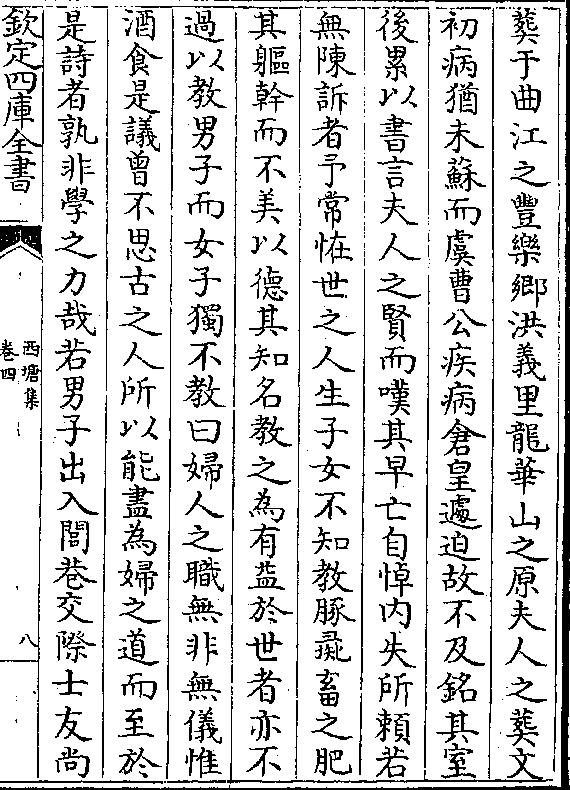 葬于曲江之豐樂鄉洪義里龍華山之原夫人之葬文
初病猶未蘇而虞曹公疾病倉皇遽迫故不及銘其室
後累以書言夫人之賢而嘆其早亡自悼内失所賴若
無陳訴者予常怪世之人生子女不知教豚彘畜之肥
其軀幹而不美以德其知名教之為有益於世者亦不
過以教男子而女子獨不教曰婦人之職無非無儀惟
酒食是議曾不思古之人所以能盡為婦之道而至於
是詩者孰非學之力哉若男子出入閭巷交際士友尚
欽定四庫全書
西塘集
卷四
八